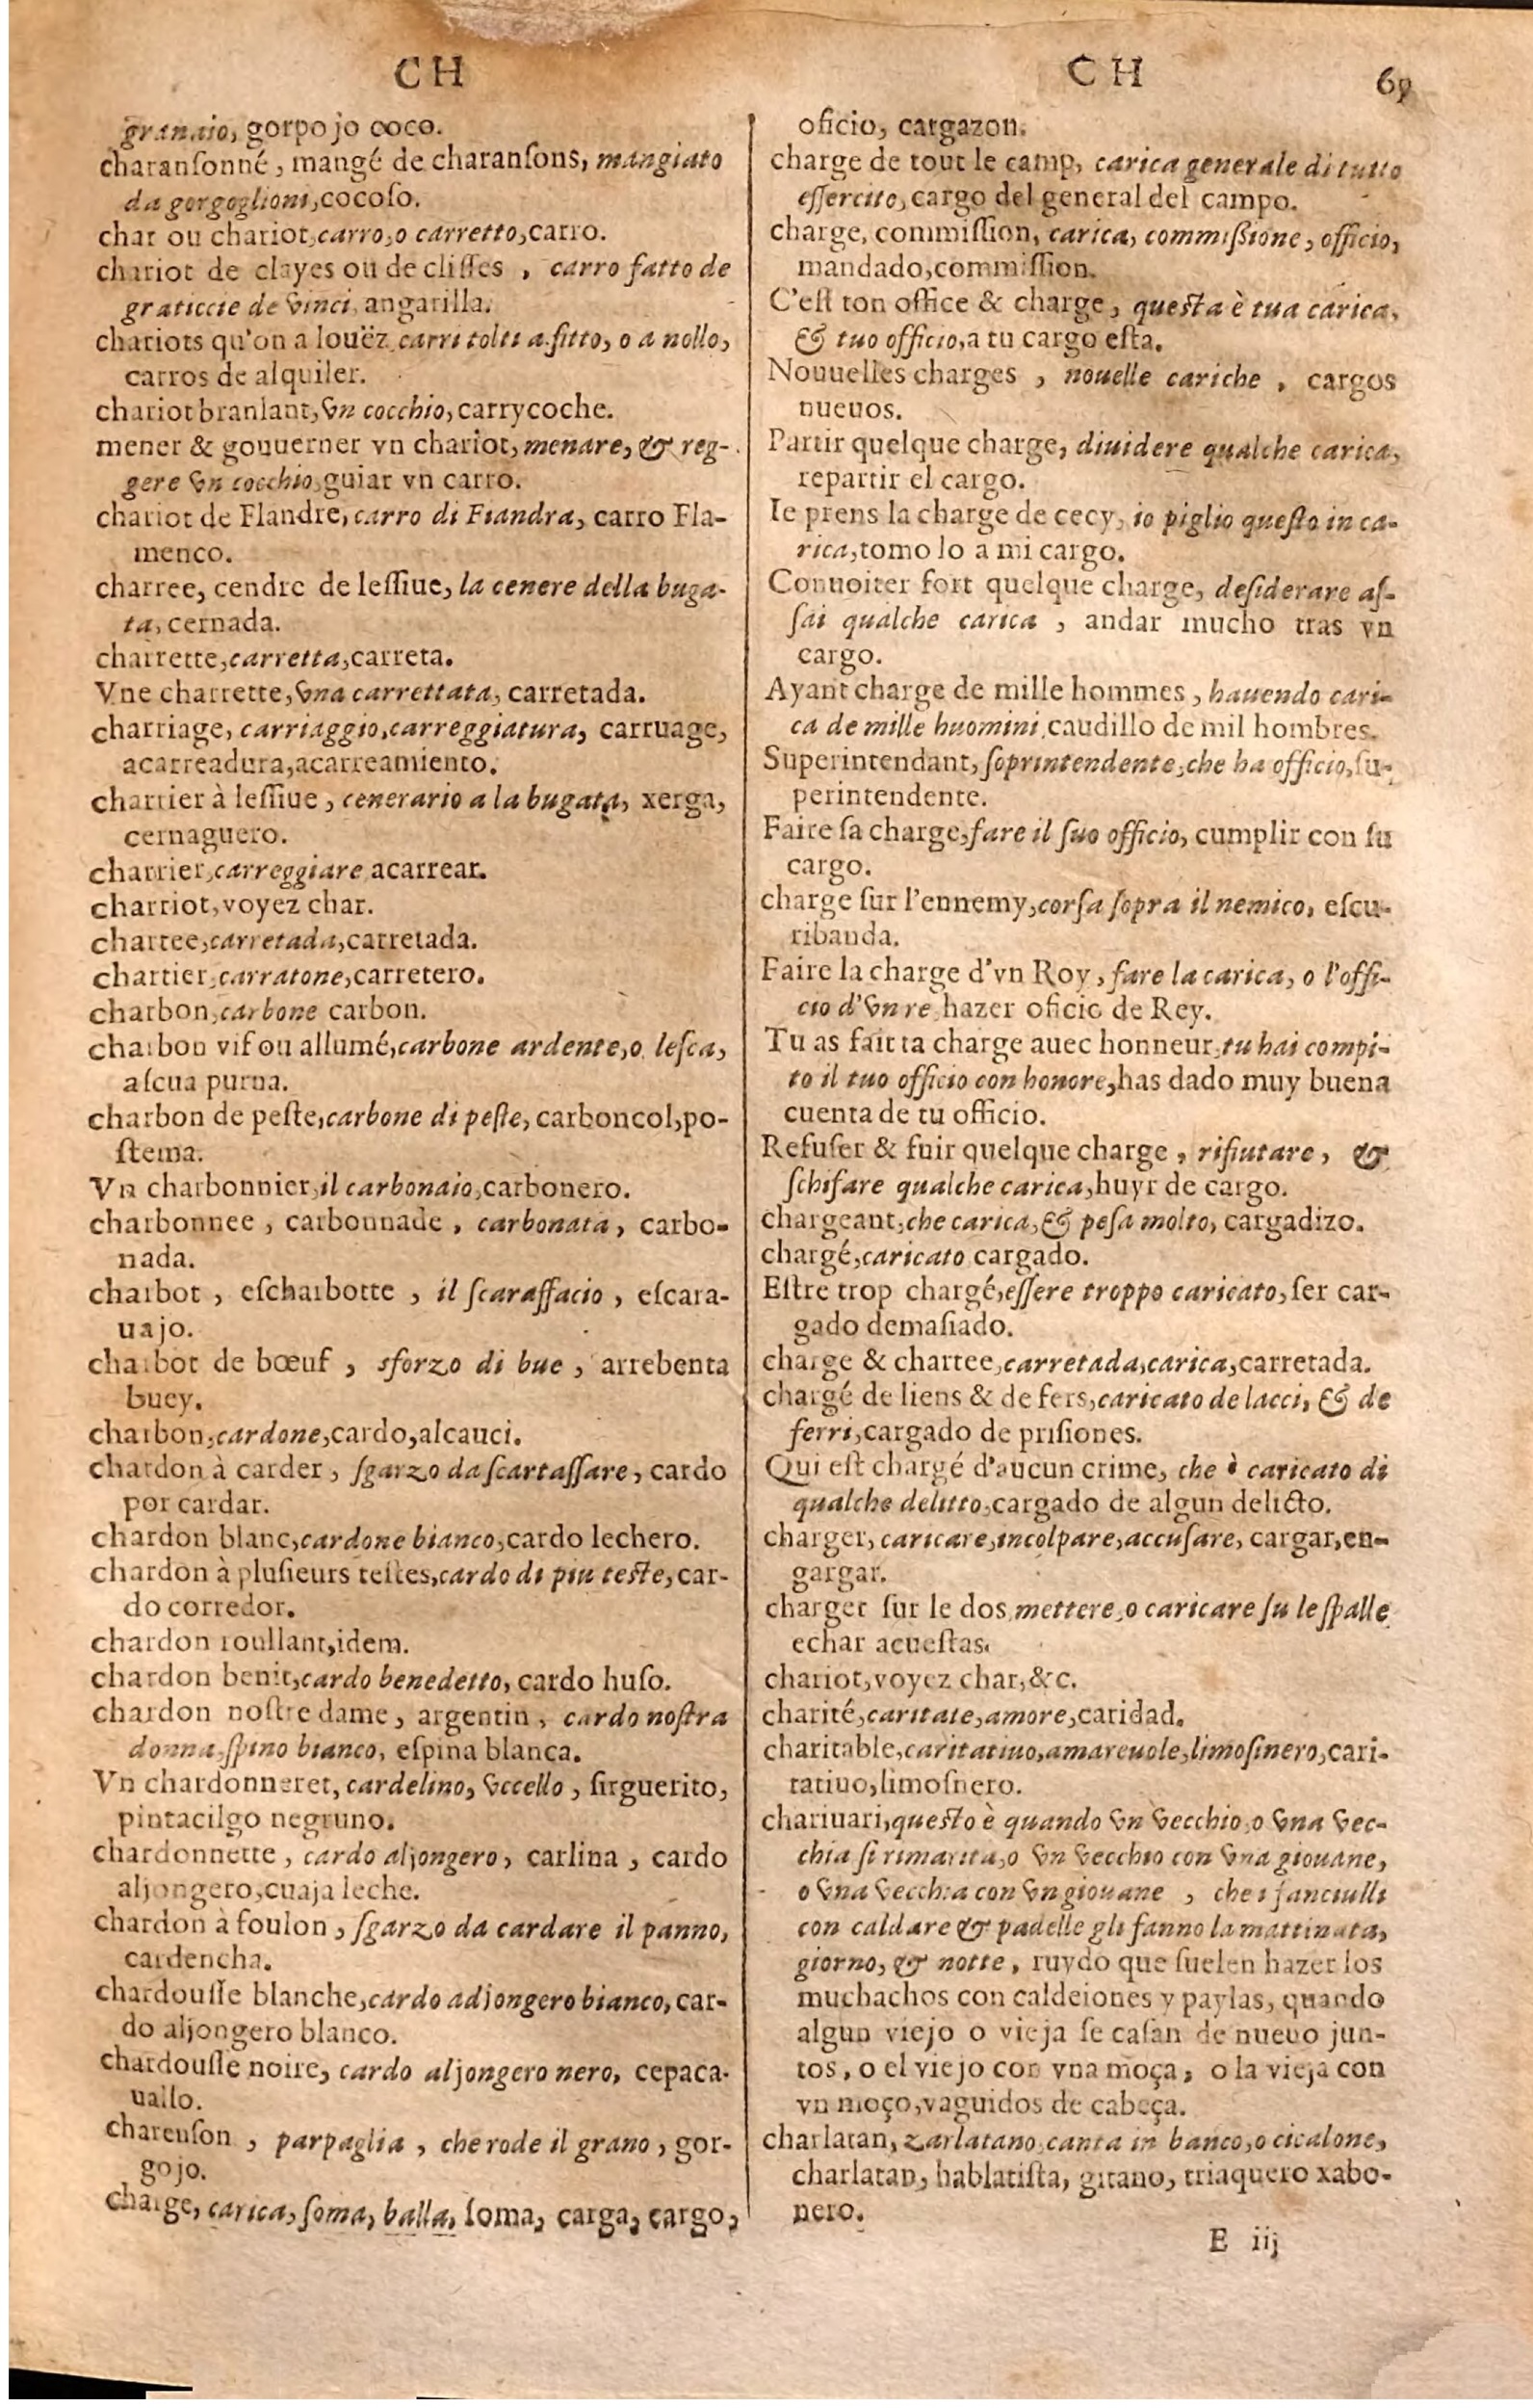 CH
granaio, gorpojo coco.
charanſonné, mangé de charanſons, mangiato
da gorgoglioni, cocoſo.
char ou chariot, carro, o carretto, carro.
chariot de clayes ou de cliſſes, carro fatto de
graticcie de vinci, angarilla.
chariots qu'on a louëz, carri tolti a fitto, o a nollo,
carros de alquiler.
chariot branlant, vn cocchio, carrycoche.
mener & gouuerner vn chariot, menare, & reg-
gere vn cocchio, guiar vn carro.
chariot de Flandre, carro di Fiandra, carro Fla-
menco.
charree, cendre de leſſiue, la cenere della buga-
ta, cernada.
charrette, carretta, carreta.
Vne charrette, vna carrettata, carretada.
charriage, carriaggio, carreggiatura, carruage,
acarreadura, acarreamiento.
charrier à leſſiue, cenerario a la bugata, xerga,
cernaguero.
charrier, carreggiare, acarrear.
charriot, voyez char.
chartee, carretada, carretada.
chartier, carratone, carretero.
charbon, carbone carbon.
charbon vif ou allumé, carbone ardente, o leſca,
aſcua purna.
charbon de peſte, carbone di peſte, carboncol, po-
ſtema.
Vn charbonnier, il carbonaio, carbonero.
charbonnee, carbonnade, carbonata, carbo-
nada.
charbot, eſcharbotte, il ſcaraffacio, eſcara-
uajo.
charbot de bœuf, sforzo di bue, arrebenta
buey.
charbon, cardone, cardo, alcauci.
chardon à carder, ſgarzo da ſcartaſſare, cardo
por cardar.
chardon blanc, cardone bianco, cardo lechero.
chardon à pluſieurs teſtes, cardo di piu teſte, car-
do corredor.
chardon roullant, idem.
chardon benit, cardo benedetto, cardo huſo.
chardon noſtre dame, argentin, cardo noſtra
donna, ſpino bianco, eſpina blanca.
Vn chardonneret, cardelino, vccello, ſirguerito,
pintacilgo negruno.
chardonnette, cardo aljongero, carlina, cardo
aljongero, cuaja leche.
chardon à foulon, ſgarzo da cardare il panno,
cardencha.
chardouſſe blanche, cardo adjongero bianco, car-
do aljongero blanco.
chardouſſe noire, cardo aljongero nero, cepaca-
uallo.
charenſon, parpaglia, che rode il grano, gor-
gojo.
charge, carica, ſoma, balla, ſoma, carga, cargo,
CH 69
oficio, cargazon.
charge de tout le camp, carica generale di tutto
eſſercito, cargo del general del campo.
charge, commiſſion, carica, commiſsione, officio,
mandado, commiſſion.
C'eſt ton office & charge, queſta è tua carica,
& tuo officio, a tu cargo eſta.
Nouuelles charges, nouelle cariche, cargos
nueuos.
Partir quelque charge, diuidere qualche carica,
repartir el cargo.
Ie prens la charge de cecy, io piglio queſto in ca-
rica, tomo lo a mi cargo.
Conuoiter fort quelque charge, deſiderare aſ-
ſai qualche carica, andar mucho tras vn
cargo.
Ayant charge de mille hommes, hauendo cari-
ca de mille huomini, caudillo de mil hombres.
Superintendant, ſoprintendente, che ha officio, ſu-
perintendente.
Faire ſa charge, fare il ſuo officio, cumplir con ſu
cargo.
charge ſur l'ennemy, corſa ſopra il nemico, eſcu-
ribanda.
Faire la charge d'vn Roy, fare la carica, o l'offi-
cio d'vn re, hazer oficio de Rey.
Tu as fait ta charge auec honneur, tu hai compi-
to il tuo officio con honore, has dado muy buena
cuenta de tu officio.
Refuſer & fuir quelque charge, rifiutare, &
ſchifare qualche carica, huyr de cargo.
chargeant, che carica, & peſa molto, cargadizo.
chargé, caricato cargado.
Eſtre trop chargé, eſſere troppo caricato, ſer car-
gado demaſiado.
charge & chartee, carretada, carica, carretada.
chargé de liens & de fers, caricato de lacci, & de
ferri, cargado de priſiones.
Qui eſt chargé d'aucun crime, che è caricato di
qualche delitto, cargado de algun delicto.
charger, caricare, incolpare, accuſare, cargar, en-
gargar.
charger ſur le dos, mettere, o caricare ſu le ſpalle
echar acueſtas.
chariot, voyez char, &c.
charité, caritate, amore, caridad.
charitable, caritatiuo, amareuole, limoſinero, cari-
tatiuo, limoſnero.
chariuari, queſto è quando vn vecchio, o vna vec-
chia ſi rimarita, o vn vecchio con vna giouane,
o vna vecchia con vn giouane, che i fanciulli
con caldare & padelle gli fanno la mattinata,
giorno, & notte, ruydo que ſuelen hazer los
muchachos con caldeiones y paylas, quando
algun viejo o vieja ſe caſan de nueuo jun-
tos, o el viejo con vna moça, o la vieja con
vn moço, vaguidos de cabeça.
charlatan, zarlatano, canta in banco, o cicalone,
charlatan, hablatiſta, gitano, triaquero xabo-
nero.
E iij